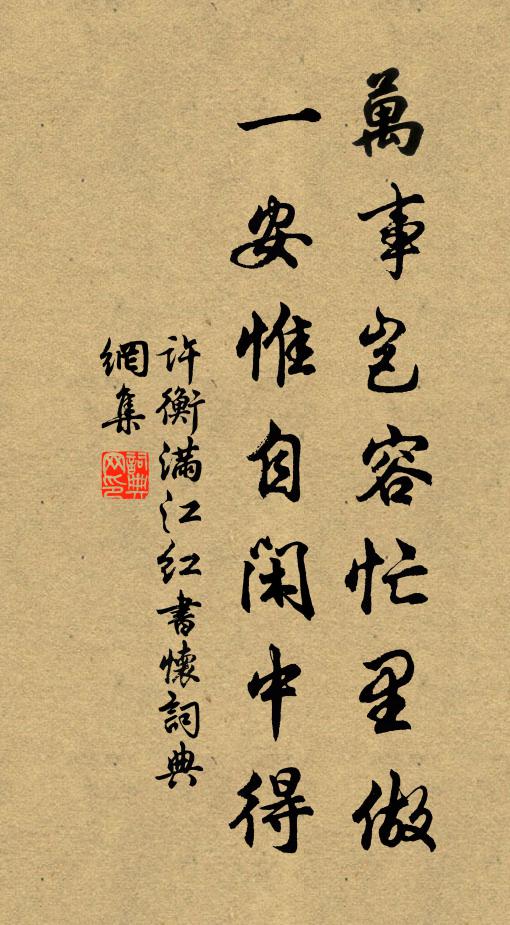 萬事岂容忙里做
一安惟自闲中得
許衡滿江红書懷詞典
網集
詞典
网印